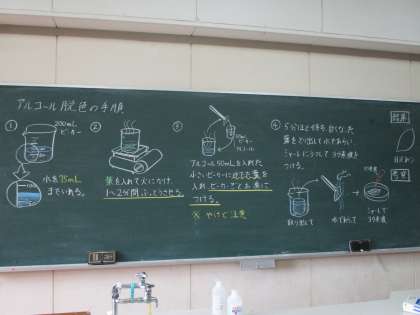 アルコール脱色の手順
①
200mL
ビーカー
水を75mL
まで入れる。
②
葉を入れて火にかけ、
1〜2分間ふっとうさせる。
③
ビーカー
アルコール
アルコール50mLを入れた
小さいビーカーに
葉を
入れ、ビーカーごとお湯に
つける。
※ やけど注意
④ 5分ほど待ち、白くなった
葉をとり出して水であらい
シャーレにうつしてヨウ素液を
つける。
取り出して
水であらって
シャーレで
ヨウ素液
結果
考察